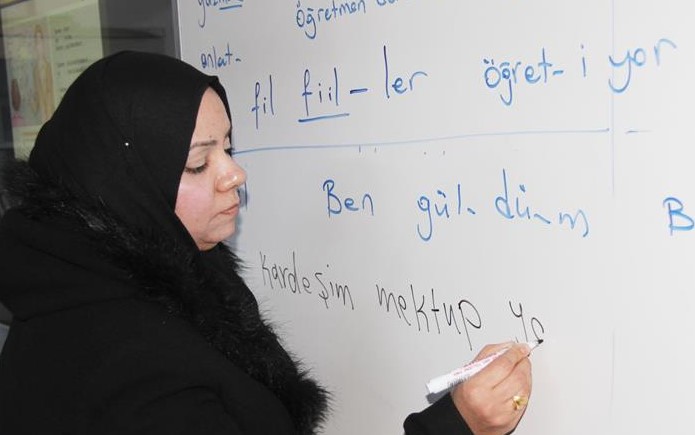 öğretmen
anlat-
fil fiil - ler öğret- i yor
Ben gül- dü- m B
Kardeşim mektup ya